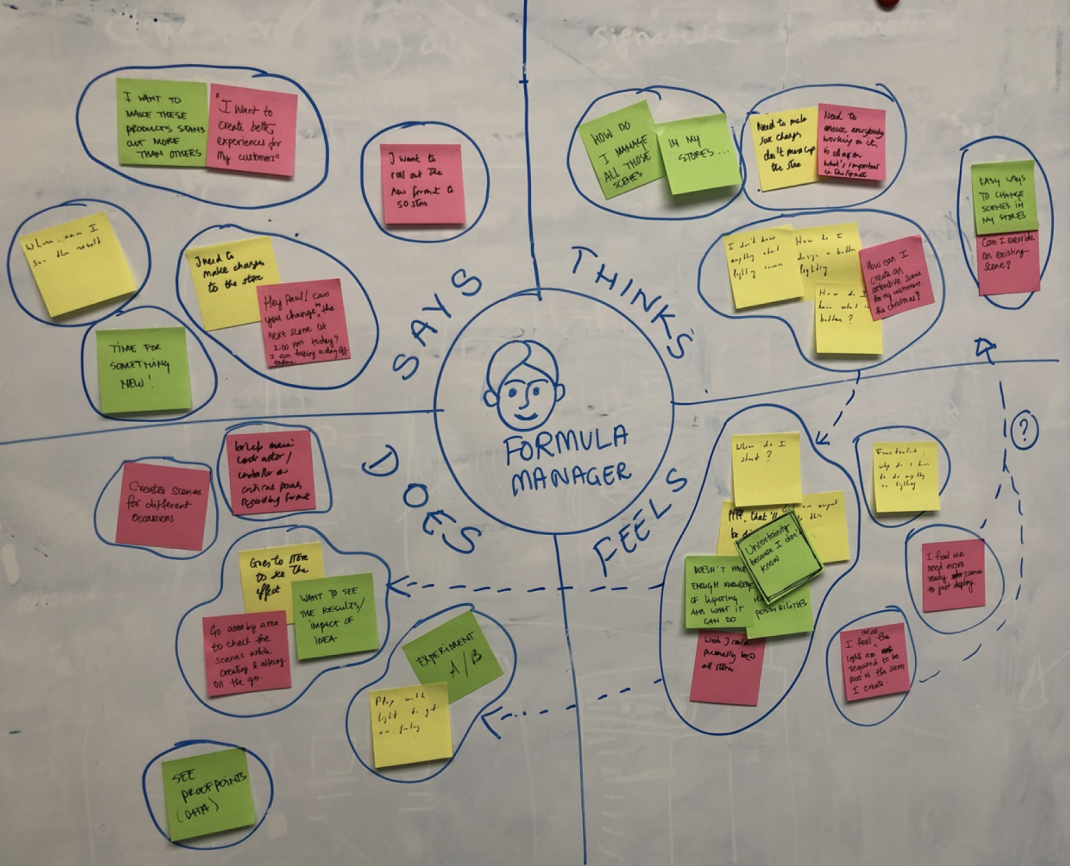 I WANT TO
MAKE THESE
PRODUCTS STAND
OUT MORE
THAN OTHERS
"I Want to
create better
experiences for
My customers"
I want to
roll out the
new format to
50 stores
When can I
see the result
I need to
make changes
to the store
Hey Paul! Can
you change the
next scene at
2:00 pm today?
I am taking a day off
today.
TIME FOR
SOMETHING
NEW!
SAYS
HOW DO
I MANAGE
ALL THOSE
SCENES
IN MY
STORES...
Need to make
sure changes
don't mess up
the store
Need to
ensure everybody
working on it
is clear on
what's important
in the format
EASY WAYS
TO CHANGE
SCENES IN
MY STORES
Can I override
an existing
scene?
I don't know
anything about
lighting
How do I
design a better
lighting
How do I
know what is
better?
How can I
create an
attractive scene
for my customers
this christmas?
THINKS
FORMULA
MANAGER
DOES
Create scenes
for different
occassions
brief
contractor/
critical points
regarding format
Goes to store
to see the
effect
WANT TO SEE
THE RESULTS/
IMPACT OF
IDEA
Go area by area
to check the
scenes while
creating & altering
on the go.
EXPERIMENT
A/B
Play with
light to get
SEE
PROOFPOINTS
(DATA)
FEELS
Where do I
start?
that'll
Uncertainty
because I don't
know
DOESN'T HAVE
ENOUGH KNOWLEDGE
OF LIGHTING
AND WHAT IT
CAN DO
POSSIBILITIES
Wish I could
personally
all stores
Frustrated:
why do I have
to do anything
on lighting
I feel we
need more
ready scenes
to just deploy.
I feel the
lights are
required to be
part of the scene
I create.
?